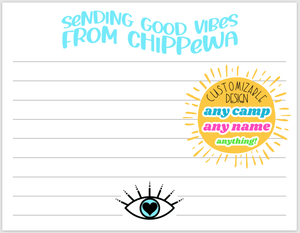 SeNDiNG GOOD ViBeS
FROM CHiPPeWA
CUSTOMIZABLE
DESIGN
any camp
any name
anything!